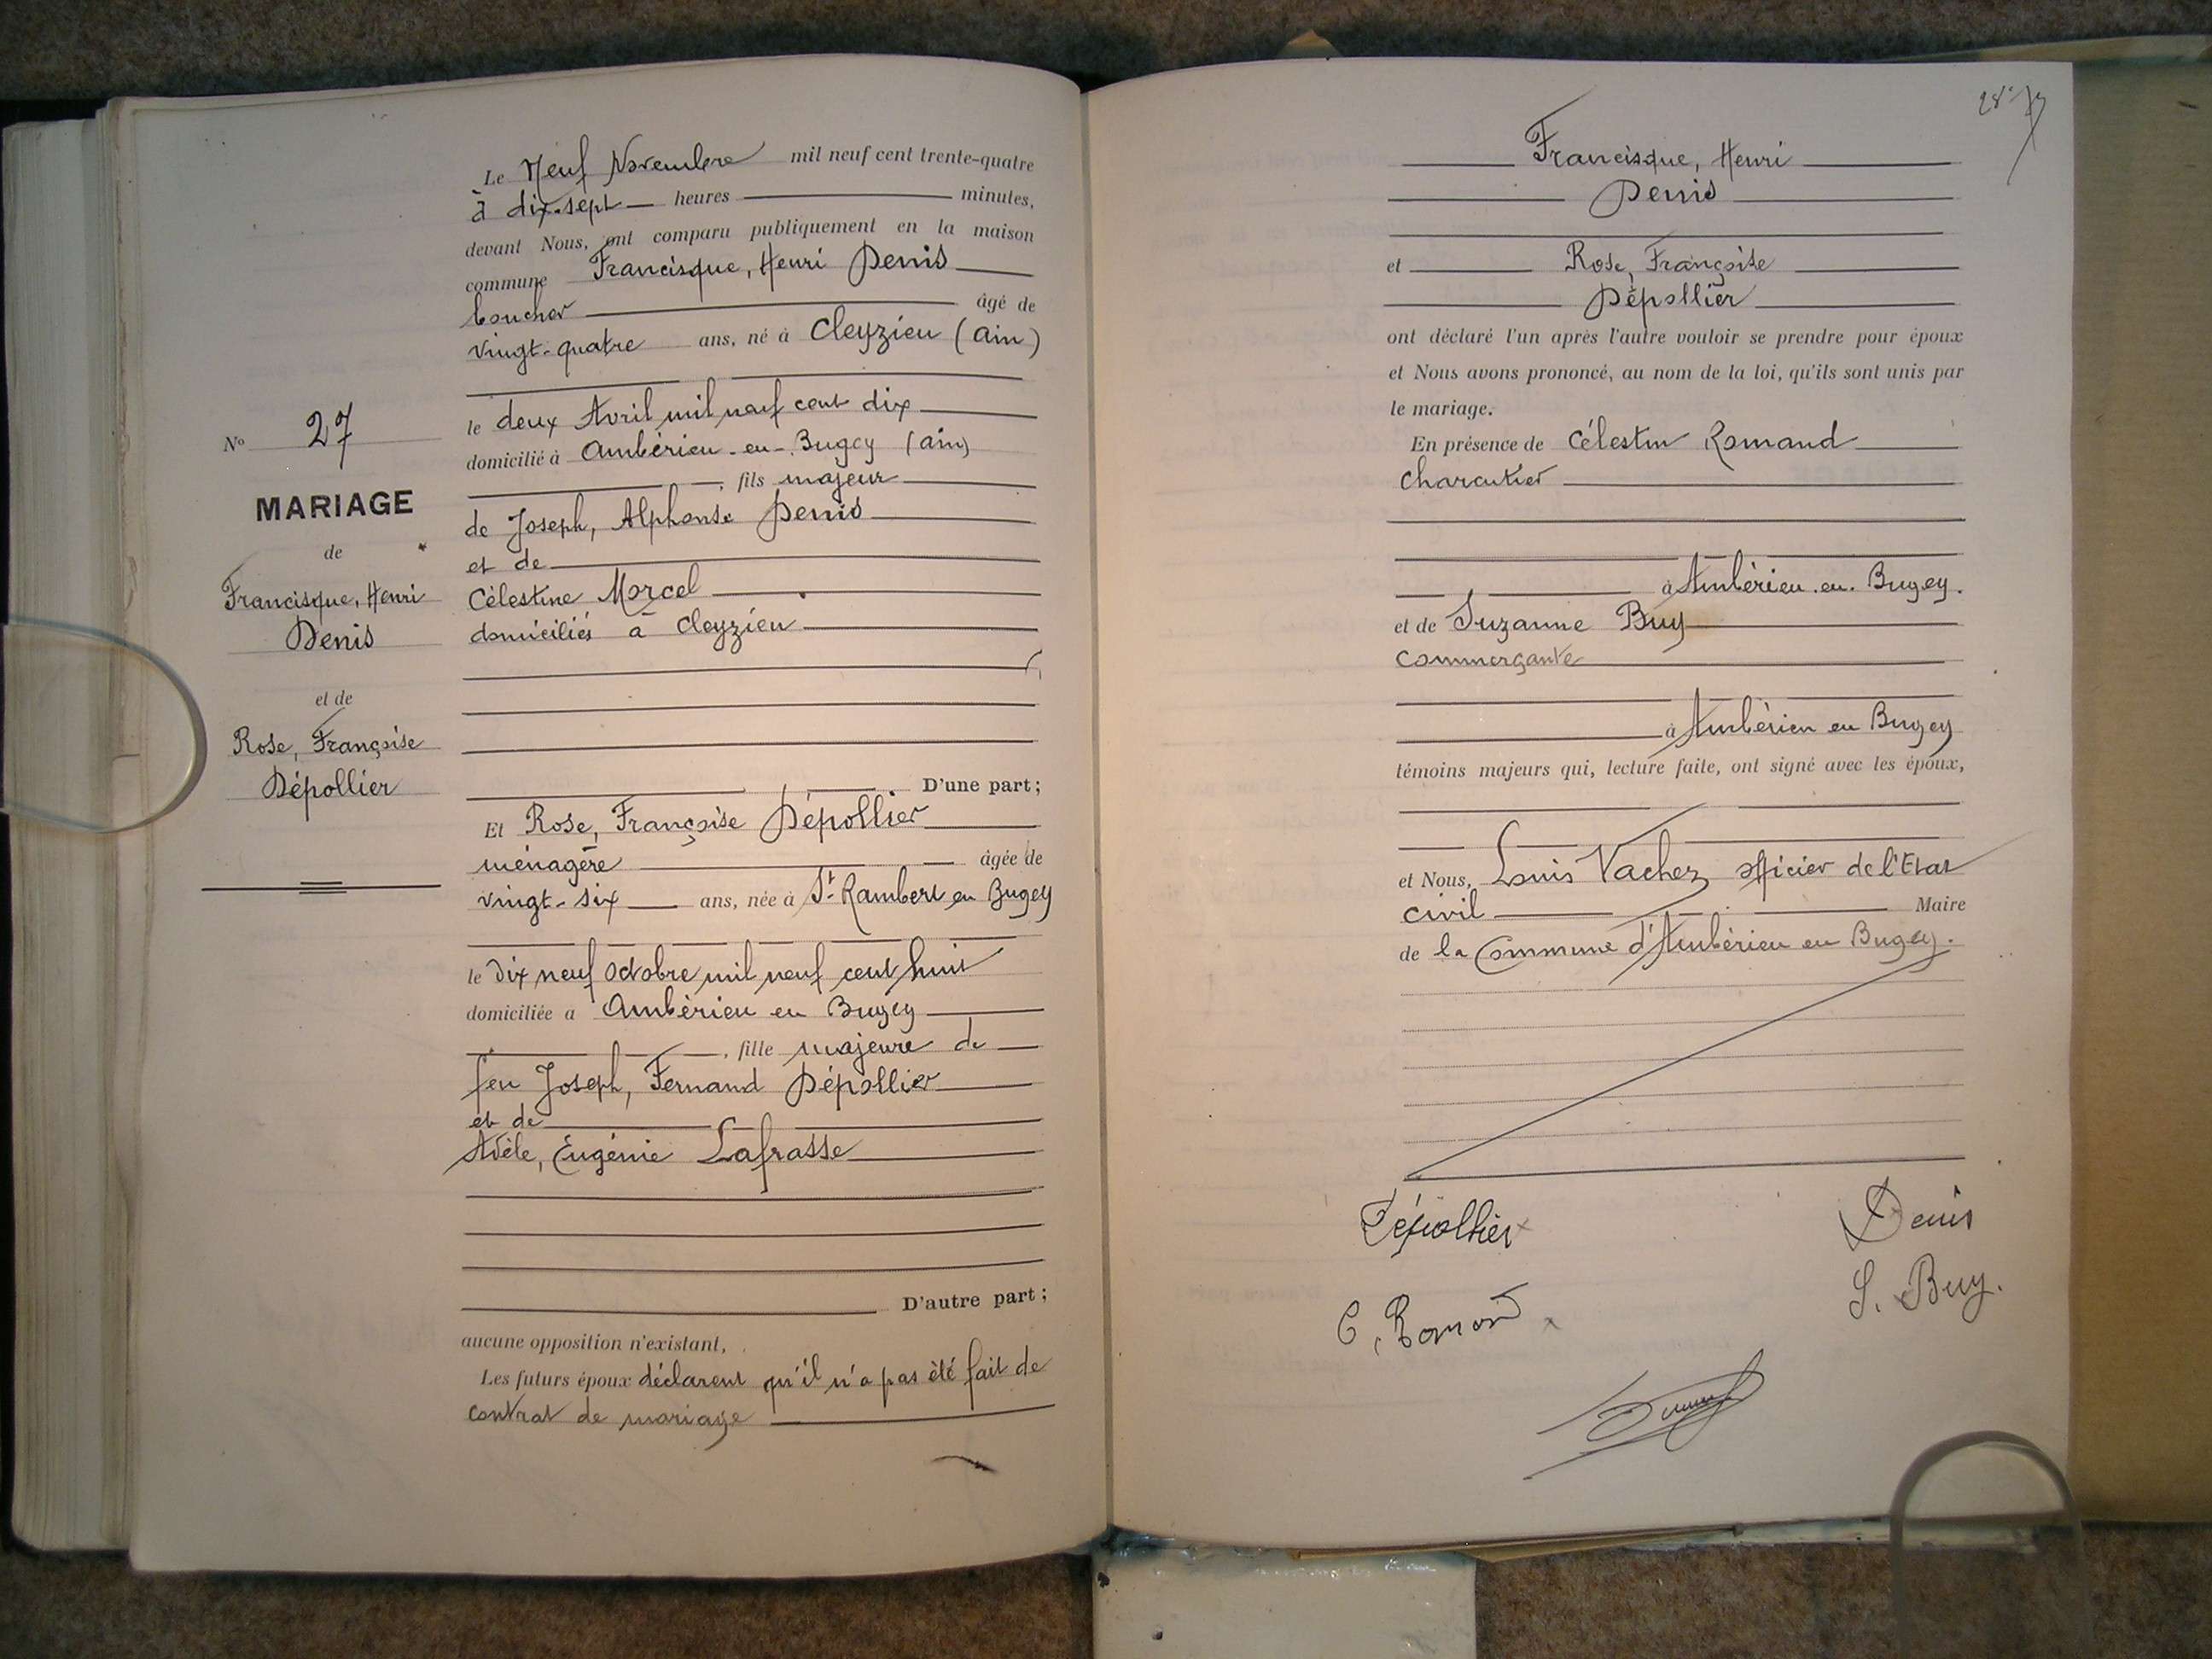 N° 27
MARIAGE
de
Francisque, Henri
Denis
et de
Rose, Françoise
Dépollier
Le Neuf Novembre mil neuf cent trente-quatre
à dix-sept heures minutes,
devant Nous, ont comparu publiquement en la maison
commune Francisque, Henri Denis
boucher âgé de
vingt-quatre ans, né à Cleyzieu (Ain)
le deux Avril mil neuf cent dix
domicilié à Ambérieu-en-Bugey (Ain)
, fils majeur
de Joseph, Alphonse Denis
et de
Célestine Morcel
domiciliés à Cleyzieu
D'une part;
Et Rose, Françoise Dépollier
ménagère âgée de
vingt-six ans, née à St Rambert en Bugey
le dix neuf octobre mil neuf cent huit
domiciliée à Ambérieu en Bugey
, fille majeure de
feu Joseph, Fernand Dépollier
et de
Adèle, Eugénie Lafrasse
D'autre part;
aucune opposition n'existant,
Les futurs époux déclarent qu'il n'a pas été fait de
contrat de mariage
28
Francisque, Henri
Denis
et Rose, Françoise
Dépollier
ont déclaré l'un après l'autre vouloir se prendre pour époux
et Nous avons prononcé, au nom de la loi, qu'ils sont unis par
le mariage.
En présence de Célestin Romand
charcutier
à Ambérieu-en-Bugey.
et de Suzanne Buy
commerçante
à Ambérieu en Bugey
témoins majeurs qui, lecture faite, ont signé avec les époux,
et Nous, Louis Vachez officier de l'Etat
civil Maire
de la Commune d'Ambérieu en Bugey.
Dépollier Denis
C. Romand S. Buy.